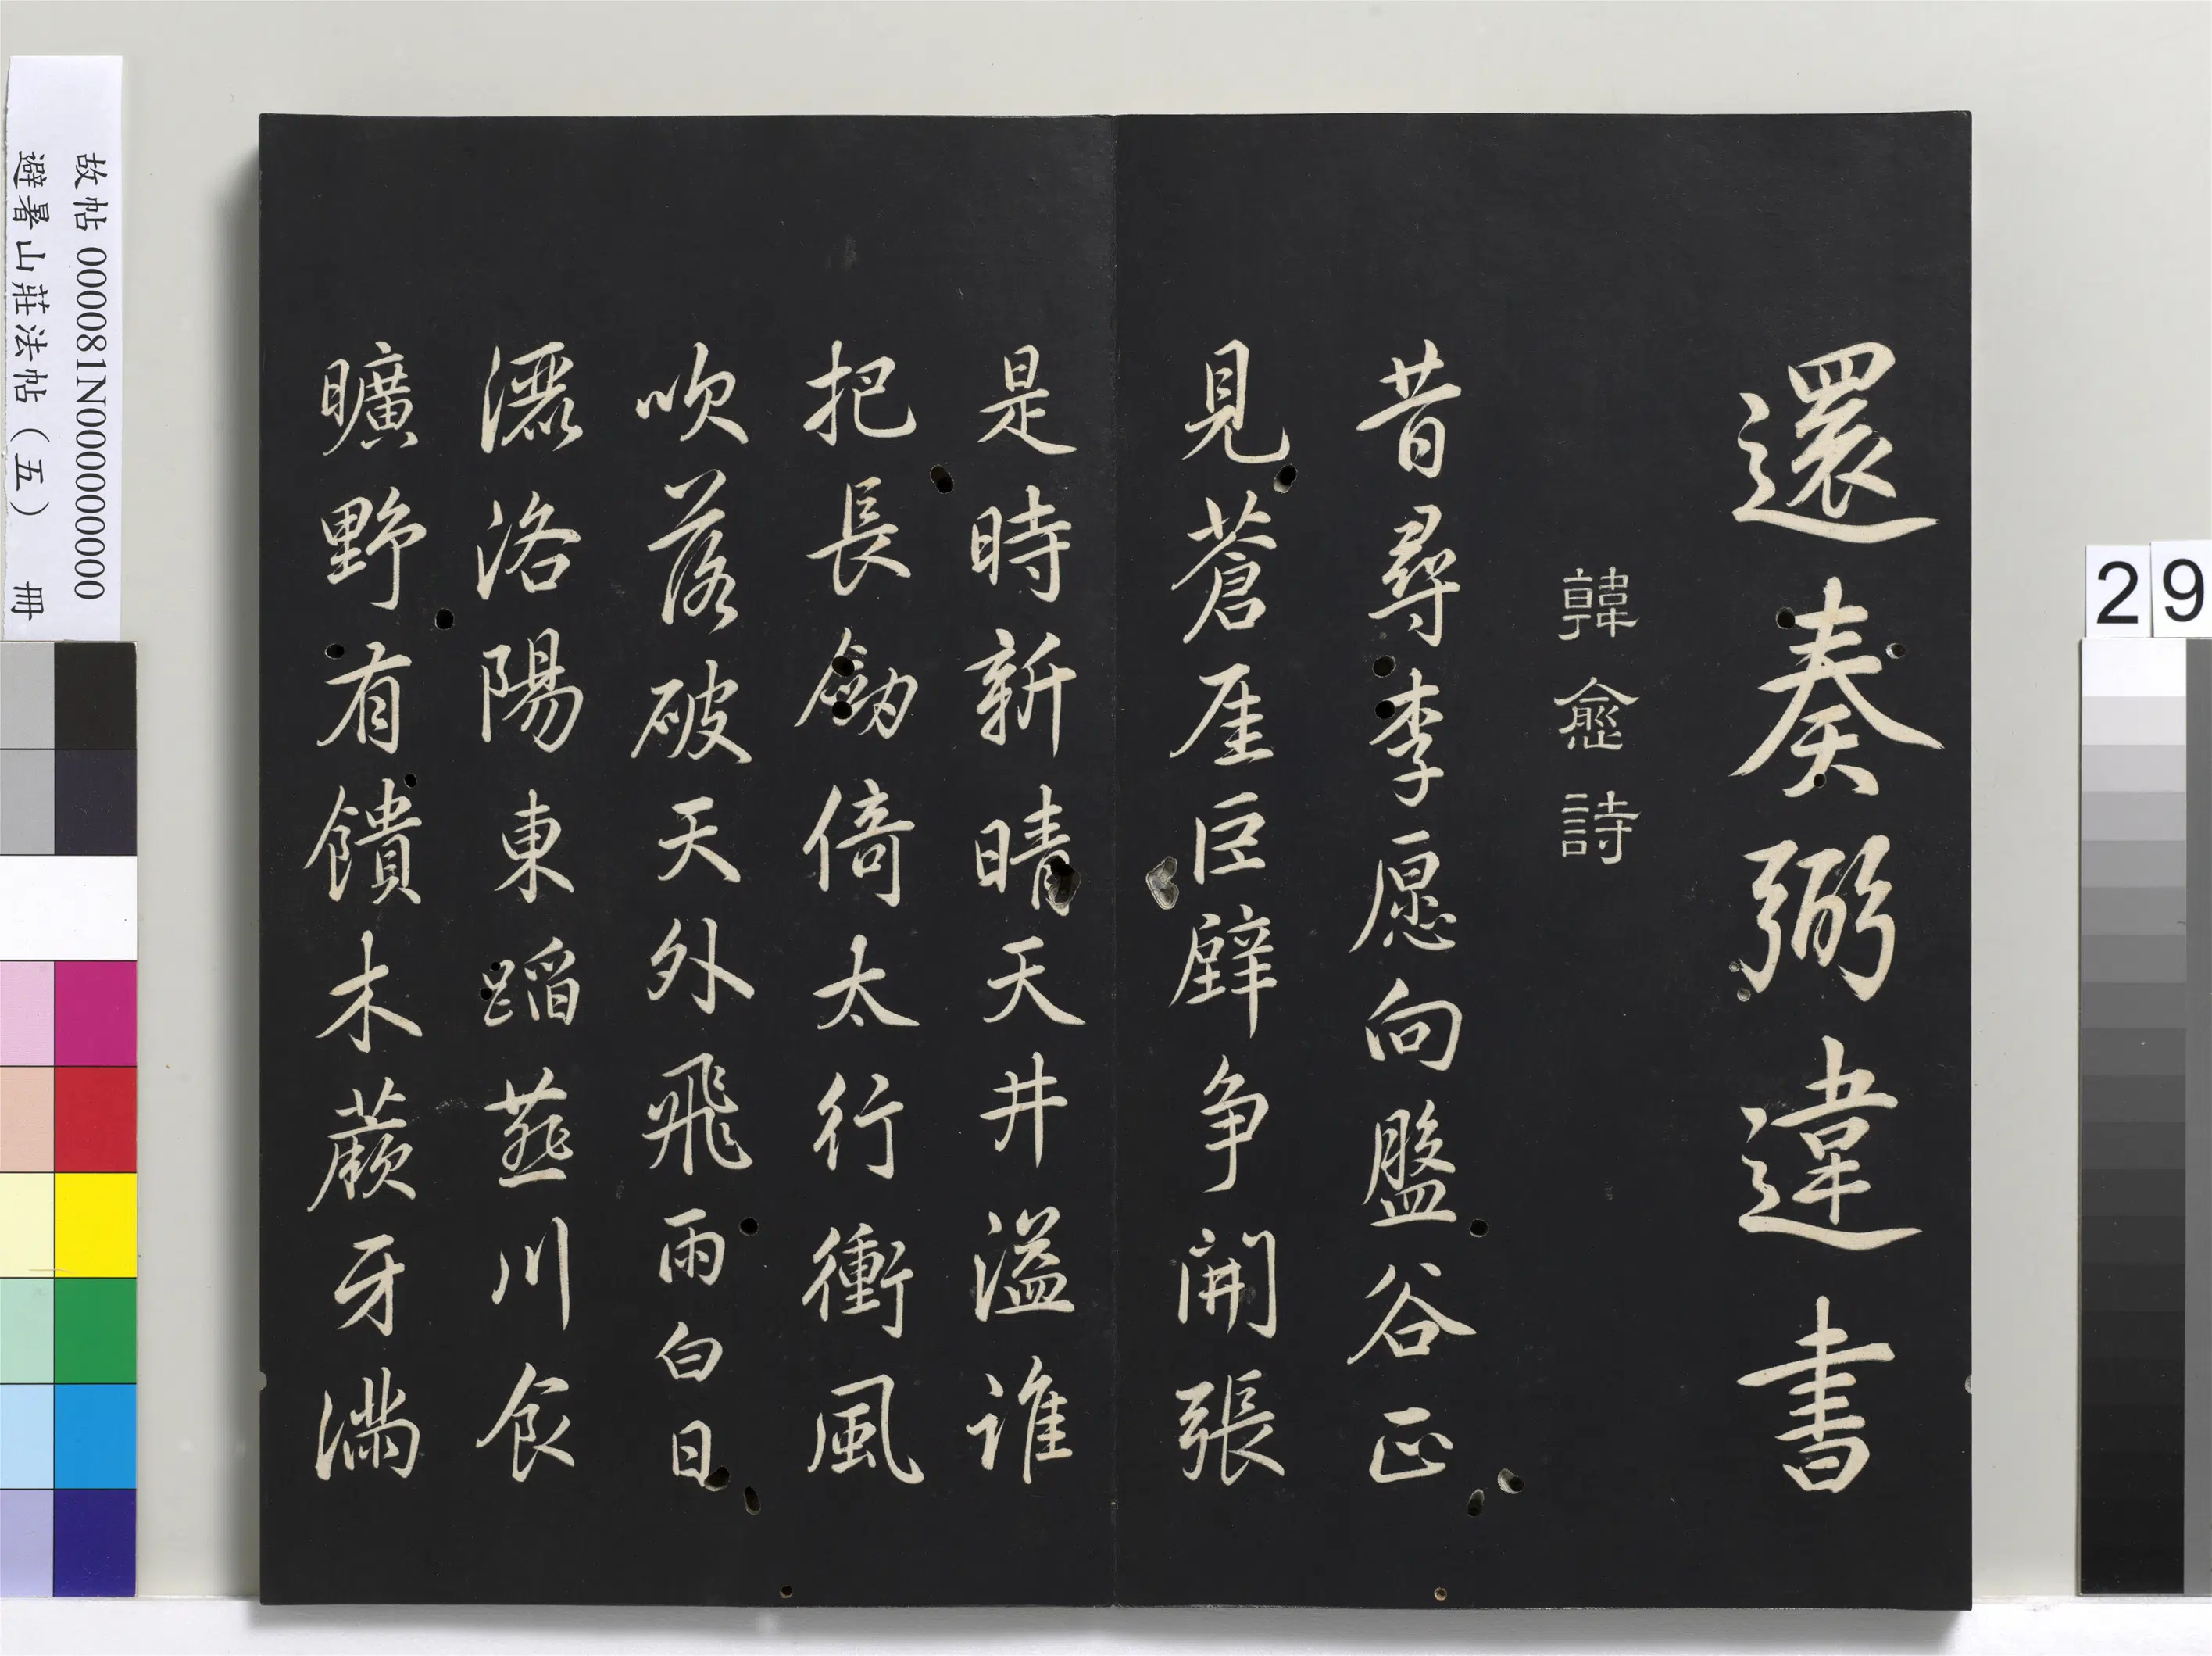 還奏弼違書
韓愈詩
昔尋李愿向盤谷正
見蒼厓臣壁争開張
是時新晴天井溢誰
把長劎倚太行衝風
吹落破天外飛雨白日
灑洛陽東蹈燕川食
曠野有饋木蕨牙滿
故帖 000081N000000000
避暑山莊法帖（五） 冊
29